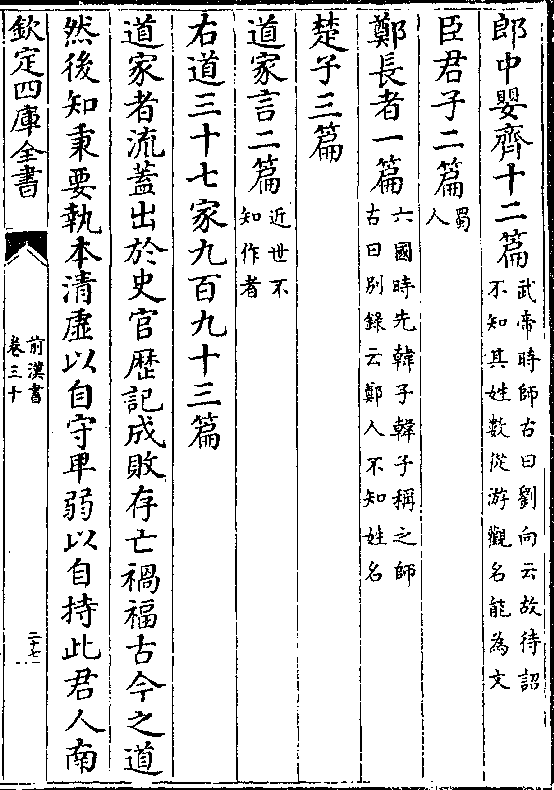 郎中嬰齊十二篇武帝時師古曰劉向云故待詔不知其姓數從游觀名能為文
臣君子二篇蜀人
鄭長者一篇六國時先韓子韓子稱之師古曰别錄云鄭人不知姓名
楚子三篇
道家言二篇近世不知作者
右道三十七家九百九十三篇
道家者流蓋出於史官歴記成敗存亡禍福古今之道
然後知秉要執本清虛以自守卑弱以自持此君人南
欽定四庫全書
前漢書
卷三十
二十七